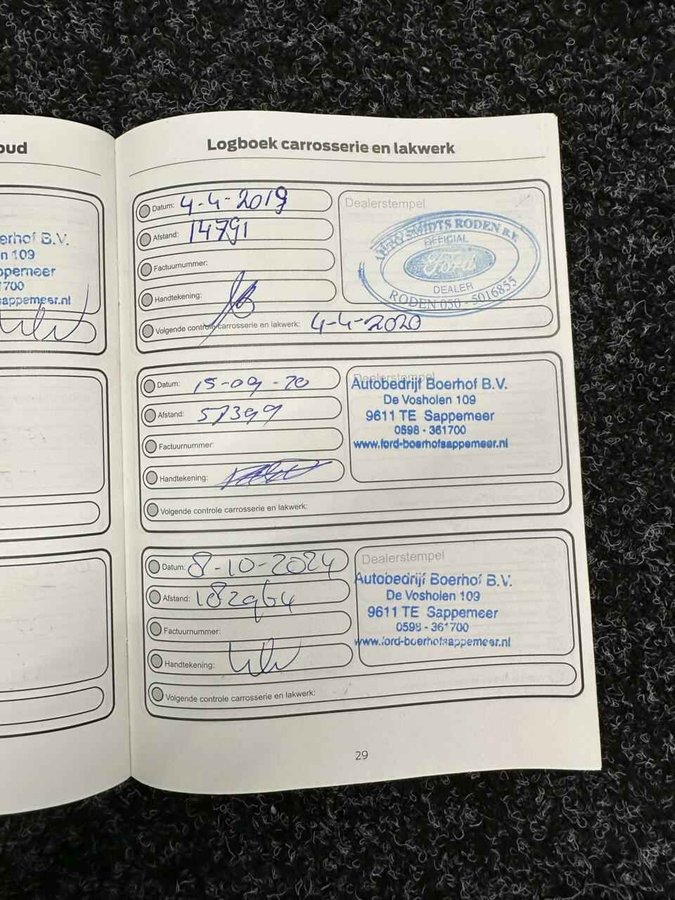 oud
erhof B.V.
n 109
ppemeer
700
sappemeer.nl
Logboek carrosserie en lakwerk
Datum: 4-4-2019
Afstand: 14791
Factuurnummer:
Handtekening:
Volgende controle carrosserie en lakwerk: 4-4-2020
Dealerstempel
SMIDTS RODEN B.V.
OFFICIAL
Ford
DEALER
RODEN 050-5016855
Datum: 15-09-20
Afstand: 57399
Factuurnummer:
Handtekening:
Volgende controle carrosserie en lakwerk:
Dealerstempel
Autobedrijf Boerhof B.V.
De Vosholen 109
9611 TE Sappemeer
0598 - 361700
www.ford-boerhofsappemeer.nl
Datum: 8-10-2024
Afstand: 182964
Factuurnummer:
Handtekening:
Volgende controle carrosserie en lakwerk:
Dealerstempel
Autobedrijf Boerhof B.V.
De Vosholen 109
9611 TE Sappemeer
0598 - 361700
www.ford-boerhofsappemeer.nl
29